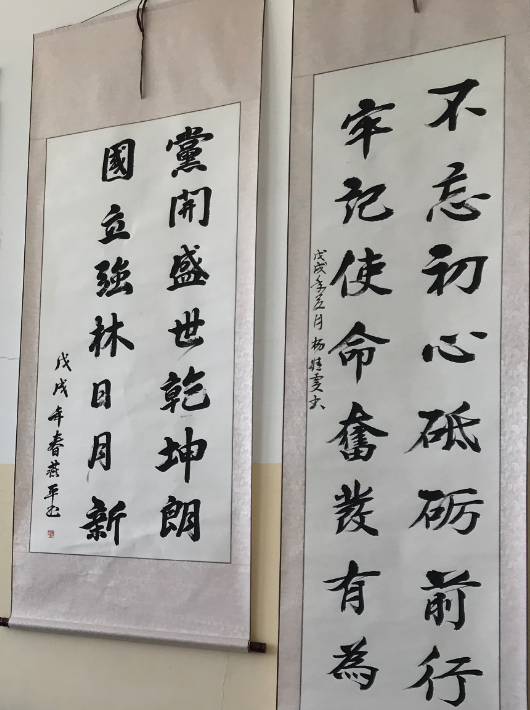 黨開盛世乾坤朗
國立強林日月新
戊戌年春燕平书
不忘初心砥砺前行
牢记使命奮發有為
戊戌年五月杨